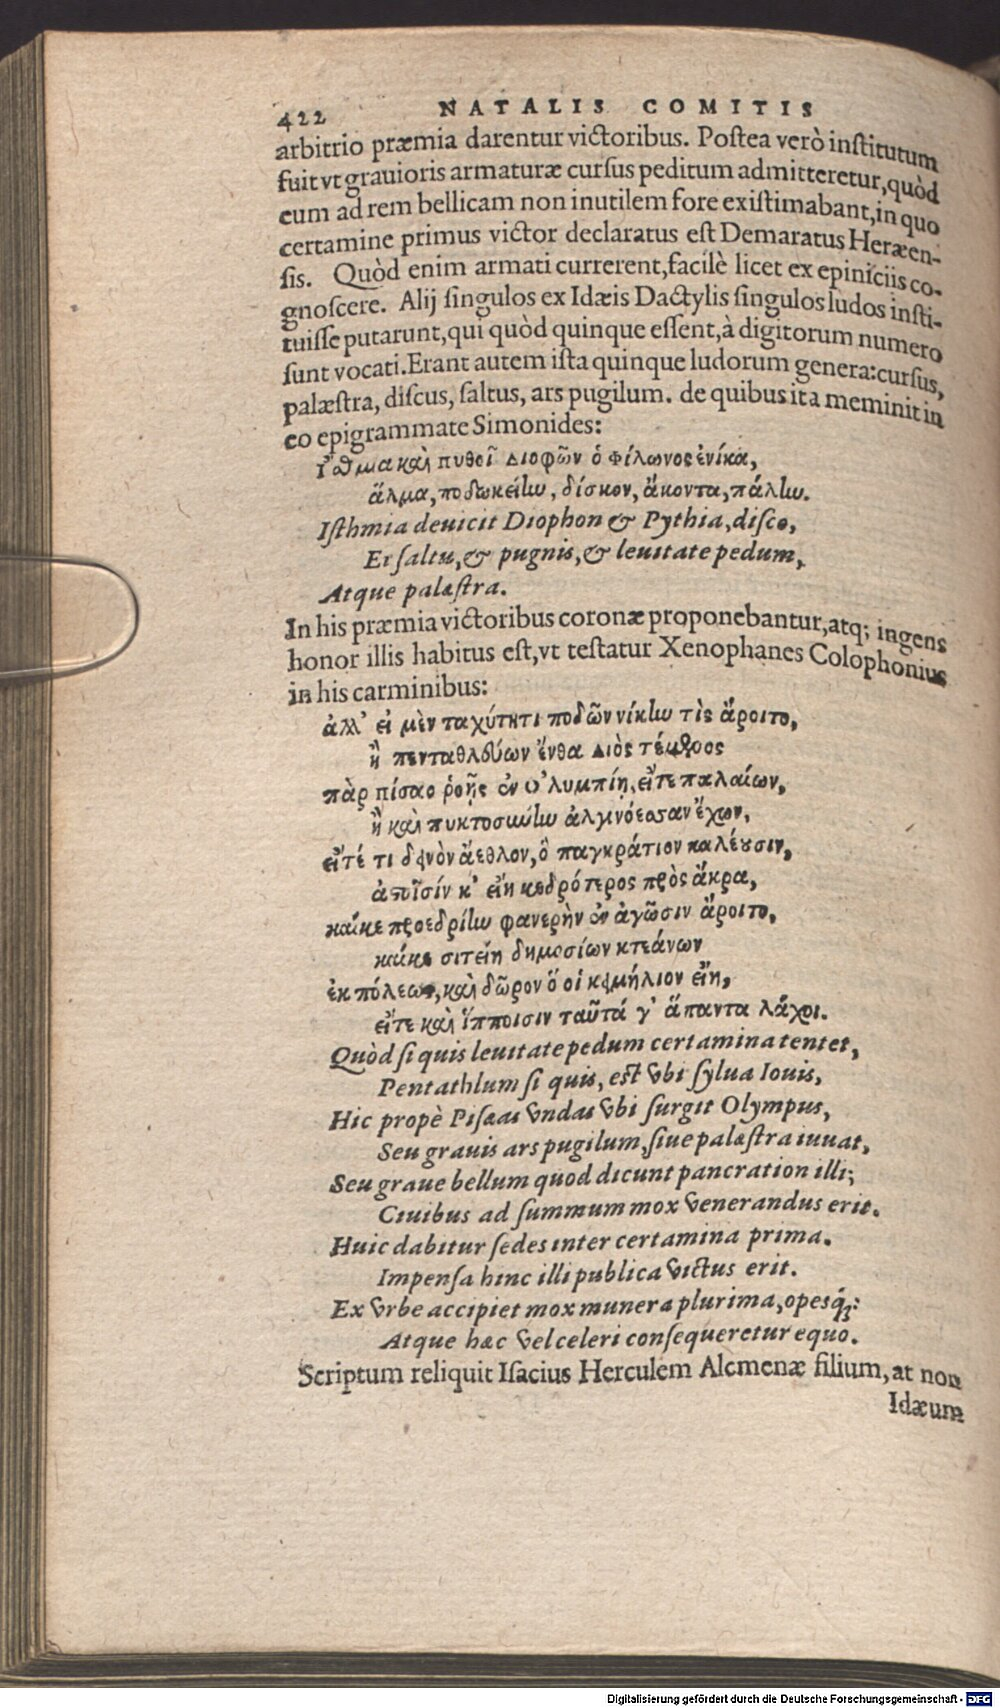 422 NATALIS COMITIS
arbitrio præmia darentur victoribus. Postea verò institutum
fuit vt grauioris armaturæ cursus peditum admitteretur, quòd
eum ad rem bellicam non inutilem fore existimabant, in quo
certamine primus victor declaratus est Demaratus Heræen-
sis. Quòd enim armati currerent, facilè licet ex epiniciis co-
gnoscere. Alij singulos ex Idæis Dactylis singulos ludos insti-
tuisse putarunt, qui quòd quinque essent, à digitorum numero
sunt vocati. Erant autem ista quinque ludorum genera: cursus,
palæstra, discus, saltus, ars pugilum. de quibus ita meminit in
eo epigrammate Simonides:
Ἴσθμια καὶ πυθοῖ Διοφῶν ὁ Φίλωνος ἐνίκα,
ἅλμα, ποδωκείlω, δίσκον, ἄκοντα, πάλlω.
Isthmia deuicit Diophon & Pythia, disco,
Et saltu, & pugnis, & leuitate pedum,
Atque palæstra.
In his præmia victoribus coronæ proponebantur, atq; ingens
honor illis habitus est, vt testatur Xenophanes Colophonius
in his carminibus:
ἀλλ' εἰ μὲν ταχύτητι ποδῶν νίκlω τὶς ἄροιτο,
ἢ πενταθλεύων ἔνθα Διὸς τέμενος
πὰρ πίσαο ῥοῇς ἐν Ὀλυμπίῃ, εἴτε παλαίων,
ἢ καὶ πυκτοσύνlω ἀλγινόεσσαν ἔχων,
εἴτέ τι δεινὸν ἄεθλον, ὃ παγκράτιον καλέουσιν,
ἀστοῖσίν κ' εἴη κυδρότερος πρὸς ἄκρα,
καίκε προεδρίlω φανερὴν ἐν ἀγῶσιν ἄροιτο,
καίκε σιτείη δημοσίων κτεάνων
ἐκ πόλεως, καὶ δῶρον ὅ οἱ κειμήλιον εἴη,
εἴτε καὶ ἵπποισιν ταῦτά γ' ἅπαντα λάχοι.
Quòd si quis leuitate pedum certamina tentet,
Pentathlum si quis, est vbi sylua Iouis,
Hic propè Pisæas vndas vbi surgit Olympus,
Seu grauis ars pugilum, siue palæstra iuuat,
Seu graue bellum quod dicunt pancration illi;
Ciuibus ad summum mox venerandus erit.
Huic dabitur sedes inter certamina prima.
Impensa hinc illi publica victus erit.
Ex vrbe accipiet mox munera plurima, opesq;:
Atque hæc vel celeri consequeretur equo.
Scriptum reliquit Isacius Herculem Alcmenæ filium, at non
Idæum
Digitalisierung gefördert durch die Deutsche Forschungsgemeinschaft - DFG